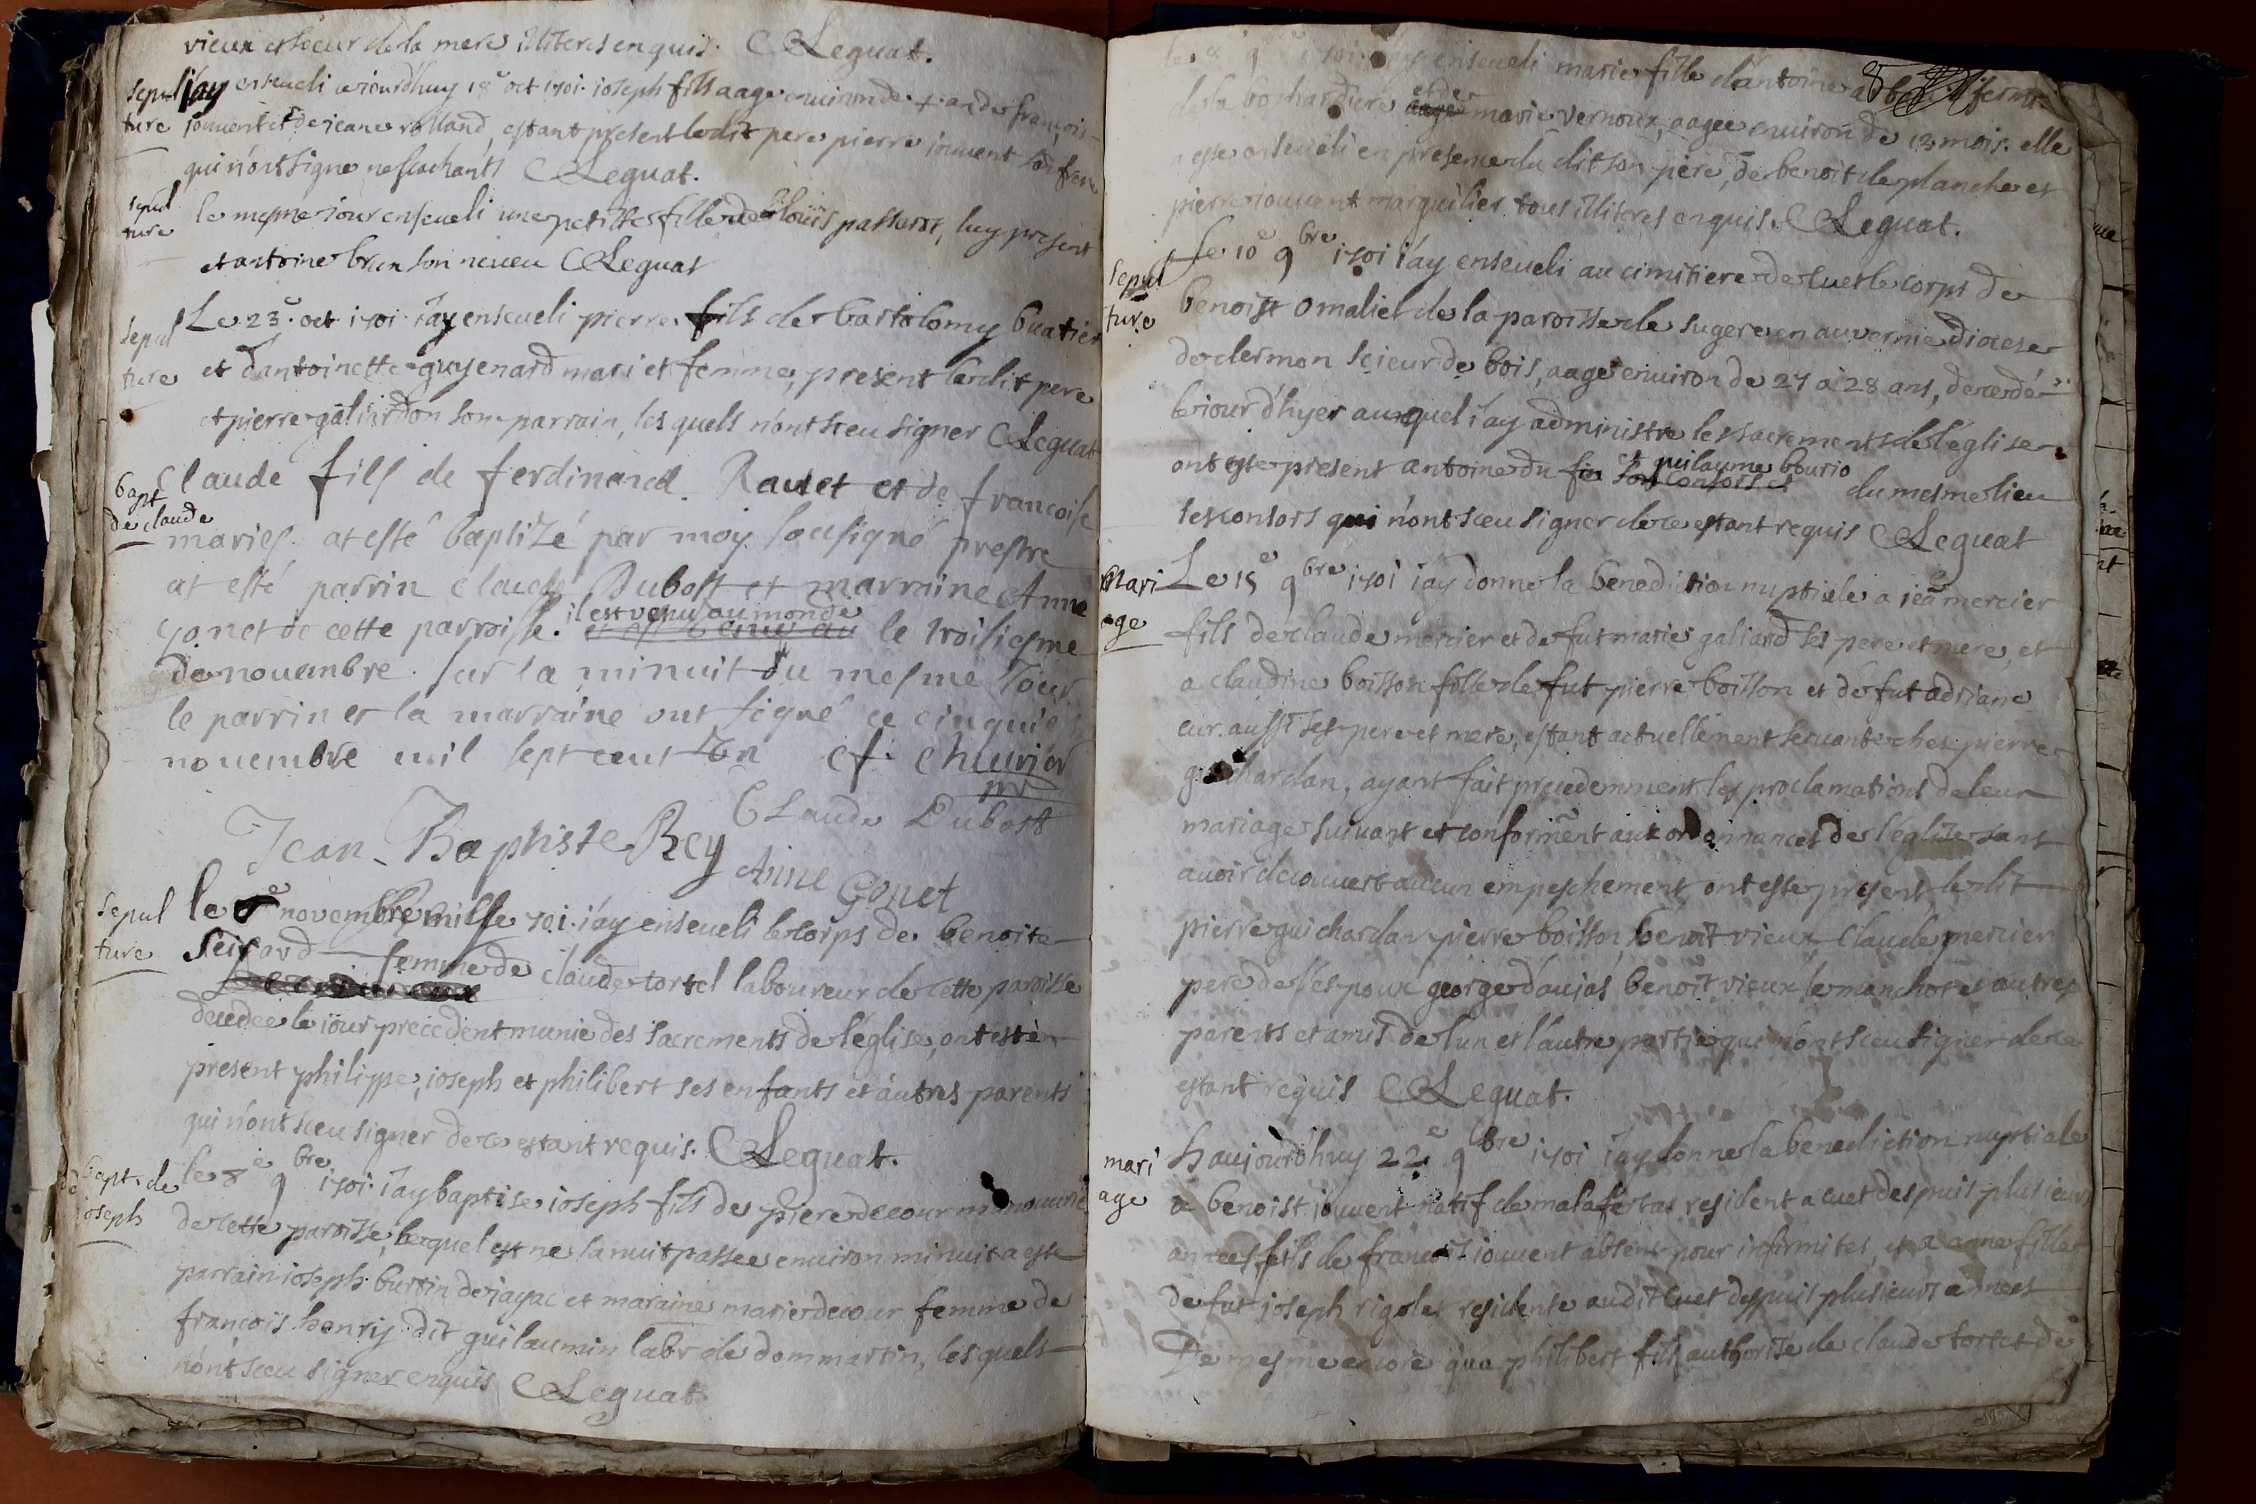 vieux et soeur de la mere illiteres enquis. CLeguat.
sepul
ture
j'ay enseveli ce iourdhuy 18e oct 1701. ioseph fils aage environ de 4 an de françois
iouvent et de jeane rolland, estant present ledit pere pierre iouvent son frere
qui n'ont signe ne sachants CLeguat.
sepul
ture
le mesme iour enseveli une petitte fille de loüis passerat, luy present
et antoine brun son neveu CLeguat
sepul
ture
Le 23e oct 1701 i'ay enseveli pierre fils de bartolomy buatier
et d'antoinette guyenard mari et femme, present ledit pere
et pierre galiardon som parrain, les quels n'ont sceu signer CLeguat
bapt
de claude
Claude fils de ferdinand Ravet et de francoise
maries at esté baptizé par moy sousigné prestre
at esté parrin claude Dubost et marraine Anne
gonet de cette parroisse. il est venu au monde le troisiesme
de novembre sur la minuit du mesme Jour
le parrin et la marraine ont signé ce cinquie
novembre mil sept cent Un
Claude Dubost
Jean Baptiste Rey
Anne Gonet
sepul
ture
le novembre mille 701. i'ay enseveli le corps de benoite
femme de claude tortel laboureur de cette paroisse
decedee le iour precedent munie des sacrements de l'eglise, ont esté
present philippe, ioseph et philibert ses enfants et autres parents
qui n'ont sceu signer de ce estant requis. CLeguat.
bapt. de
ioseph
le 8e 9bre 1701. i'ay baptise ioseph fils de piere decour
de cette paroisse, lequel est ne la nuit passee environ minuit a este
parrain ioseph burtin de jayac et maraine marie decour femme de
francois henry dit guilaumin labr de dommartin, les quels
n'ont sceu signer enquis CLeguat
le 8 9bre 1701. enseveli marie fille d'antoine
de la bochardiere et de marie vernoux, aagee environ de 13 mois. elle
a este enseveli en presence du dit son pere, de benoit de planche et
pierre iouvent marguilier tous illiteres enquis CLeguat.
sepul
ture
Le 10e 9bre 1701 i'ay enseveli au cimitiere de cuet le corps de
benoist omaliel de la paroisse de sugere en auvernie diocese
de clermon scieur de bois, aage environ de 27 a 28 ans, decedé
le iour d'hyer auquel i'ay administre les sacrements de l'eglise
ont este present antoine du et guilaume bourio du mesme lieu
ses consors qui n'ont sceu signer de ce estant requis CLeguat
Mari
age
Le 15e 9bre 1701 i'ay donne la benediction nuptiale a jeã mercier
fils de claude mercier et de fut marie galiard ses pere et mere, et
a claudine boisson fille de fut pierre boisson et de fut adriane
cur aussi ses pere et mere, estant actuellement servante chez pierre
guichardan, ayant fait precedemment les proclamations de leur
mariage suivant et conformẽnt aux ordonnances de l'eglise sans
avoir decouvert aucun empeschement, ont este present ledit
pierre guichardan pierre boisson benoit vieux claude mercier
pere de l'espoux george daujas benoit vieux le manchot et autres
parents et amis de l'un et l'autre partie qui n'ont sceu signer de ce
estant requis CLeguat.
mari
age
haujourdhuy 22e 9bre 1701 i'ay donne la benediction nuptiale
a benoist iouvent natif de malafertas resident a cuet despuis plusieurs
annees, fils de francois iouvent absent pour infirmites, et a anne fille
de fut joseph rigolet residente audit cuet despuis plusieurs annees
De mesme encore qu'a philibert fils authorise de claude tortet de